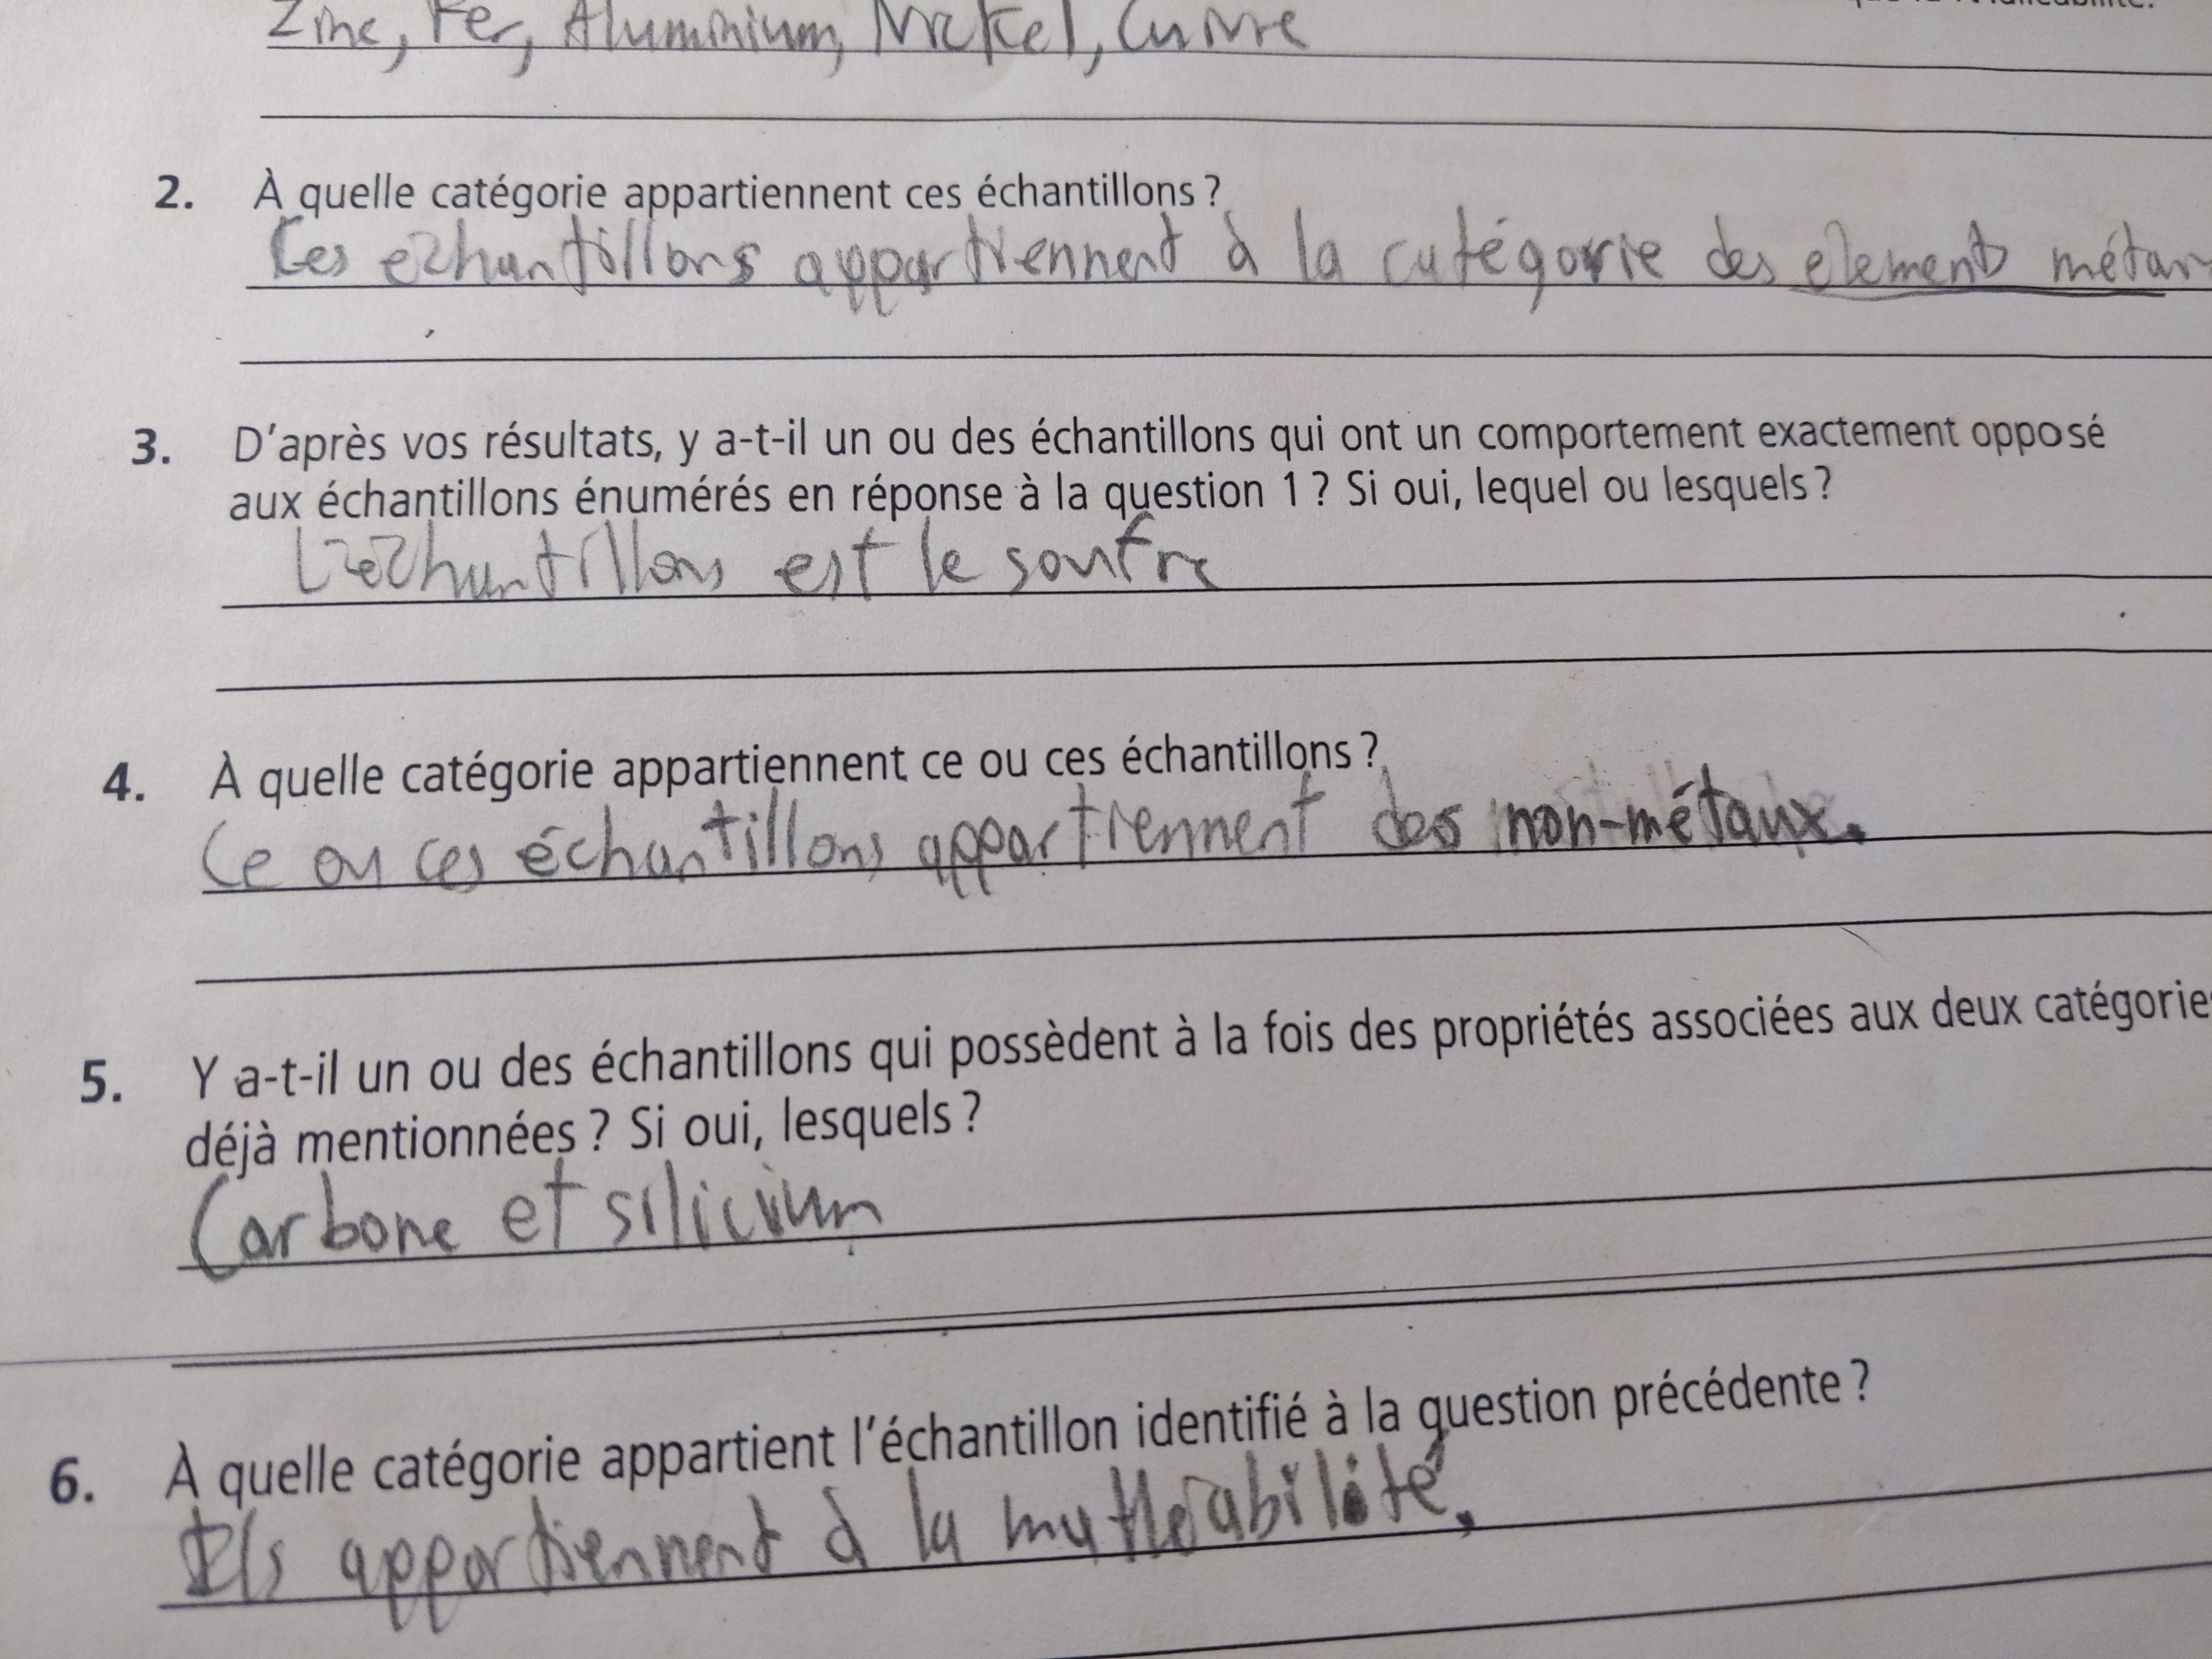 Zinc, Fer, Aluminium, Nickel, Cuivre
2. À quelle catégorie appartiennent ces échantillons ?
Ces echantillons appartiennent à la catégorie des element métau
3. D'après vos résultats, y a-t-il un ou des échantillons qui ont un comportement exactement opposé
aux échantillons énumérés en réponse à la question 1 ? Si oui, lequel ou lesquels ?
L'echantillons est le soufre
4. À quelle catégorie appartiennent ce ou ces échantillons ?
Ce ou ces échantillons appartiennent des non-métaux.
5. Y a-t-il un ou des échantillons qui possèdent à la fois des propriétés associées aux deux catégorie
déjà mentionnées ? Si oui, lesquels ?
Carbone et silicium
6. À quelle catégorie appartient l'échantillon identifié à la question précédente ?
Ils appartiennent à la